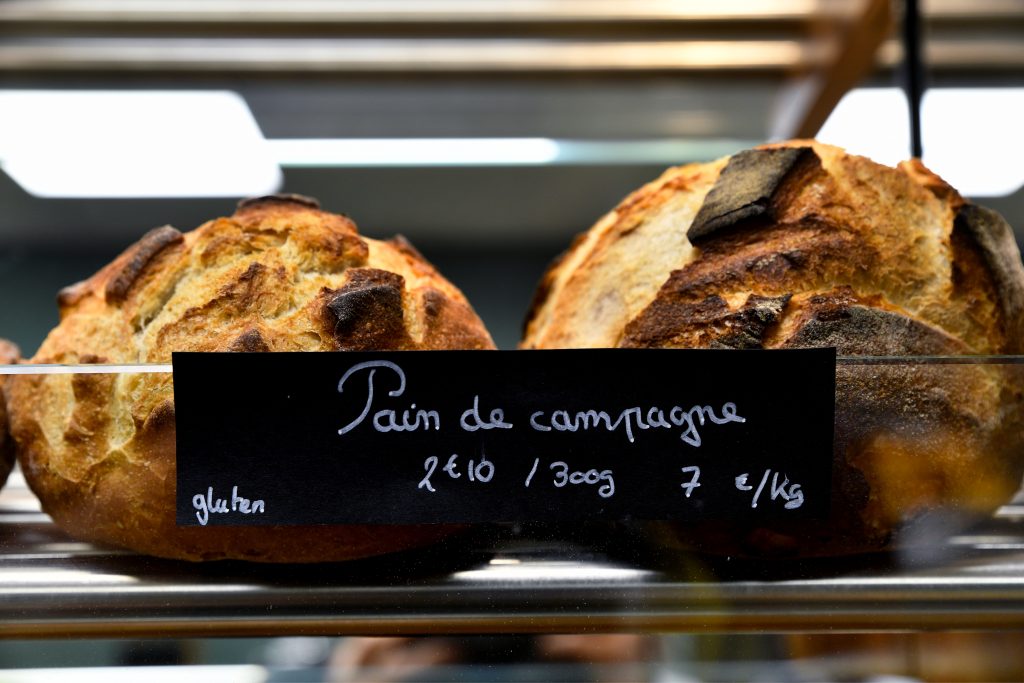 Pain de campagne
2€10 / 300g 7 €/Kg
gluten